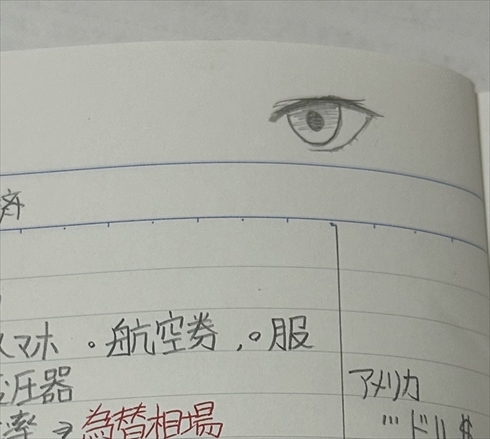 済
スマホ 。航空券,。服
変圧器
率→為替相場
アメリカ
…ドル $